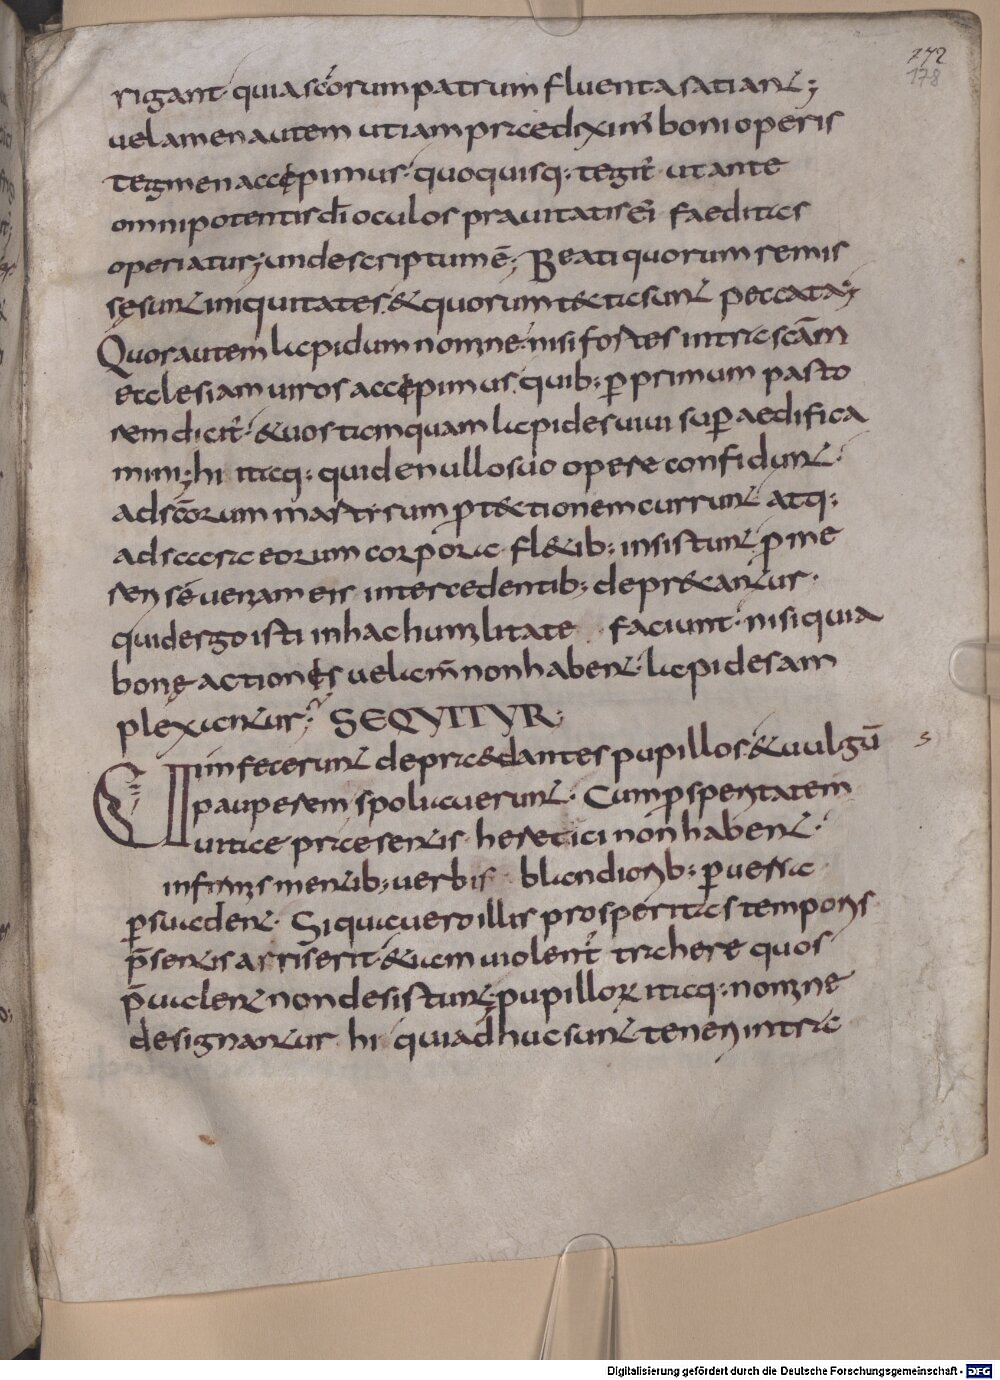 172
178
rigant quia scorum patrum fluenta satiant;
velamen autem ut iam praediximus boni operis
tegmen accepimus· quo quisq: tegit· ut ante
omnipotentis di oculos pravitatis ei faeditas
operiatur; unde scriptum ē; Beati quorum remis
sę sunt iniquitates· & quorum tecta sunt peccata;
Quor autem lapidum nomine· nisi fortes intra scām
ecclesiam viros accepimus· quib; p primum pasto
rem dicit· & vos tamquam lapides vivi sup aedifica
mini; hi itaq: qui de nullo suo opere confidunt·
ad scorum martirum ptectionem currunt atq:
ad sacra eorum corpora fletib; insistunt· p me
reri se veniam eis intercedentib; deprecantur·
quid ergo isti in hac humilitate faciunt· nisi quia
bonę actionis velam̄ non habent· lapides am
plexantur; SEQVITVR;
Vim fecerunt depraedantes pupillos· & vulgū
pauperem spoliaverunt· Cum pspentatem
vitae praesentis heretici non habent·
infirmis mentib; verbis blandiorib; pversa
psuadent· Si qua vero illis prosperitas temporis
p̄sentis arriserit· & iam violent̄ trahere quos
p̄valent non desistunt; pupillor itaq: nomine
designantur hi qui adhuc sunt teneri intra
Digitalisierung gefördert durch die Deutsche Forschungsgemeinschaft - DFG